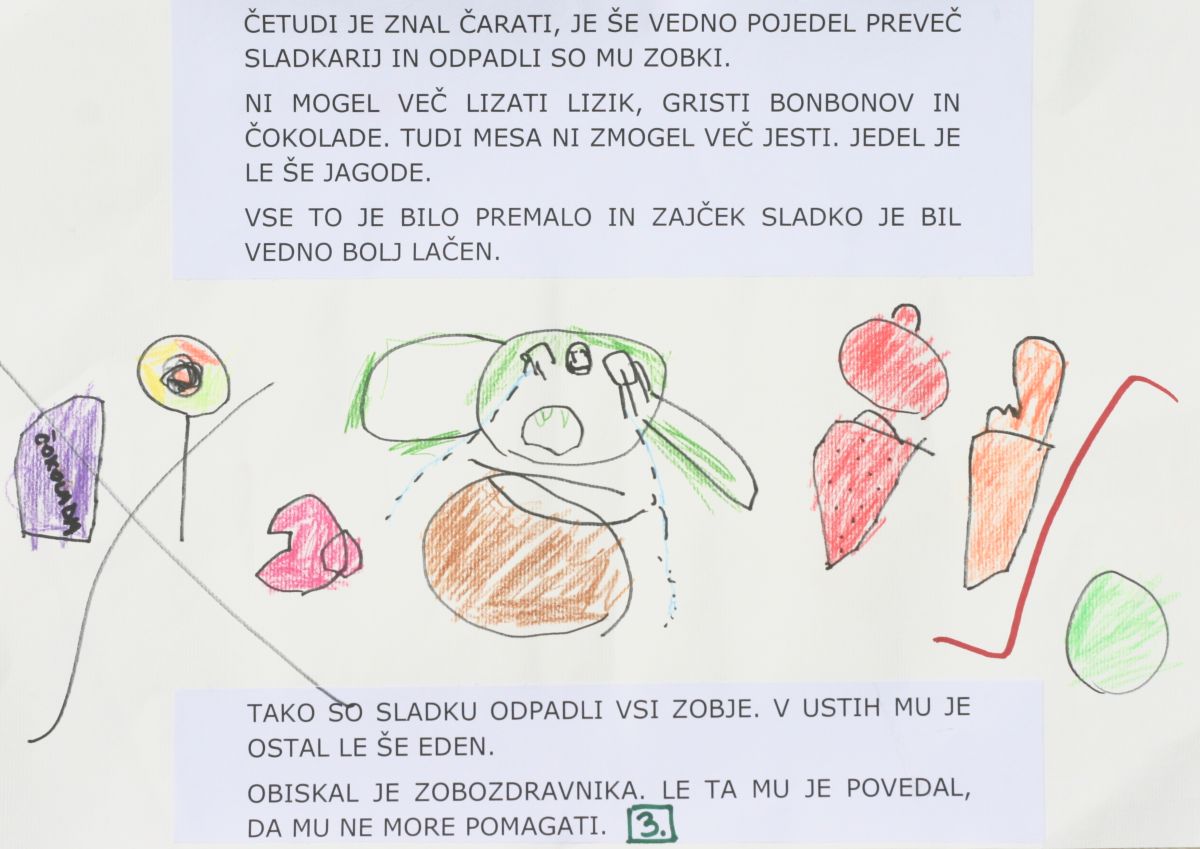 ČETUDI JE ZNAL ČARATI, JE ŠE VEDNO POJEDEL PREVEČ
SLADKARIJ IN ODPADLI SO MU ZOBKI.
NI MOGEL VEČ LIZATI LIZIK, GRISTI BONBONOV IN
ČOKOLADE. TUDI MESA NI ZMOGEL VEČ JESTI. JEDEL JE
LE ŠE JAGODE.
VSE TO JE BILO PREMALO IN ZAJČEK SLADKO JE BIL
VEDNO BOLJ LAČEN.
ČOKOLADA
TAKO SO SLADKU ODPADLI VSI ZOBJE. V USTIH MU JE
OSTAL LE ŠE EDEN.
OBISKAL JE ZOBOZDRAVNIKA. LE TA MU JE POVEDAL,
DA MU NE MORE POMAGATI. 3.